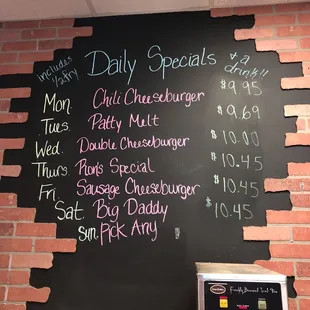 Daily Specials
includes 1/2 fry
& a drink!!
Mon. Chili Cheeseburger $9.95
Tues. Patty Melt $9.69
Wed. Double Cheeseburger $10.00
Thurs. Ron's Special $10.45
Fri. Sausage Cheeseburger $10.45
Sat. Big Daddy $10.45
Sun Pick Any
Freshly Brewed Iced Tea